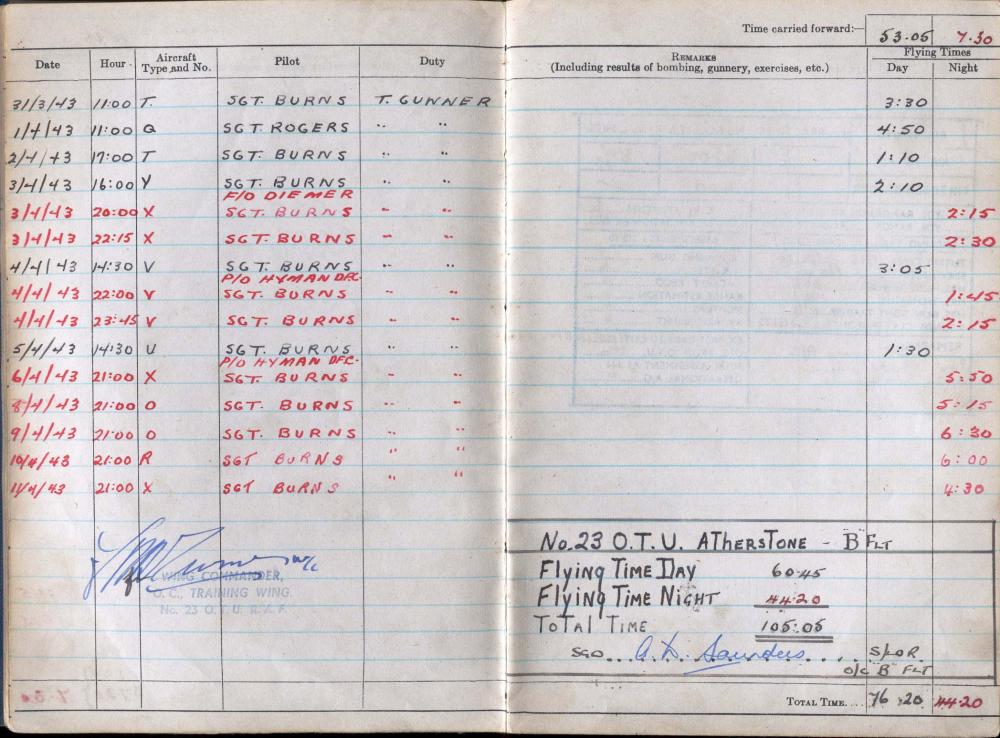 Time carried forward:— 53.05 7.30
Date Hour Aircraft Type and No. Pilot Duty REMARKS (Including results of bombing, gunnery, exercises, etc.) Flying Times Day Night
31/3/43 11:00 T. SGT. BURNS T. GUNNER 3:30
1/4/43 11:00 Q SGT. ROGERS " " 4:50
2/4/43 17:00 T SGT. BURNS " " 1:10
3/4/43 16:00 Y SGT. BURNS " " 2:10
F/O DIEMER
3/4/43 20:00 X SGT. BURNS " " 2:15
3/4/43 22:15 X SGT. BURNS " " 2:30
4/4/43 14:30 V SGT. BURNS " " 3:05
P/O HYMAN DFC.
4/4/43 22:00 V SGT. BURNS " " 1:45
4/4/43 23:45 V SGT. BURNS " " 2:15
5/4/43 14:30 U SGT. BURNS " " 1:30
P/O HYMAN DFC.
6/4/43 21:00 X SGT. BURNS " " 5:50
8/4/43 21:00 O SGT. BURNS " " 5:15
9/4/43 21:00 O SGT. BURNS " " 6:30
10/4/43 21:00 R SGT BURNS " " 6:00
11/4/43 21:00 X SGT BURNS " " 4:30
W/C
WING COMMANDER,
O.C., TRAINING WING.
No. 23 O.T.U. R.A.F.
No. 23 O.T.U. ATHERSTONE - B FLT
FLYING TIME DAY 60.45
FLYING TIME NIGHT 44:20
TOTAL TIME 105:05
SGD... A. D. Saunders.... S/LDR.
O/C B FLT
TOTAL TIME.... 76:20 44:20